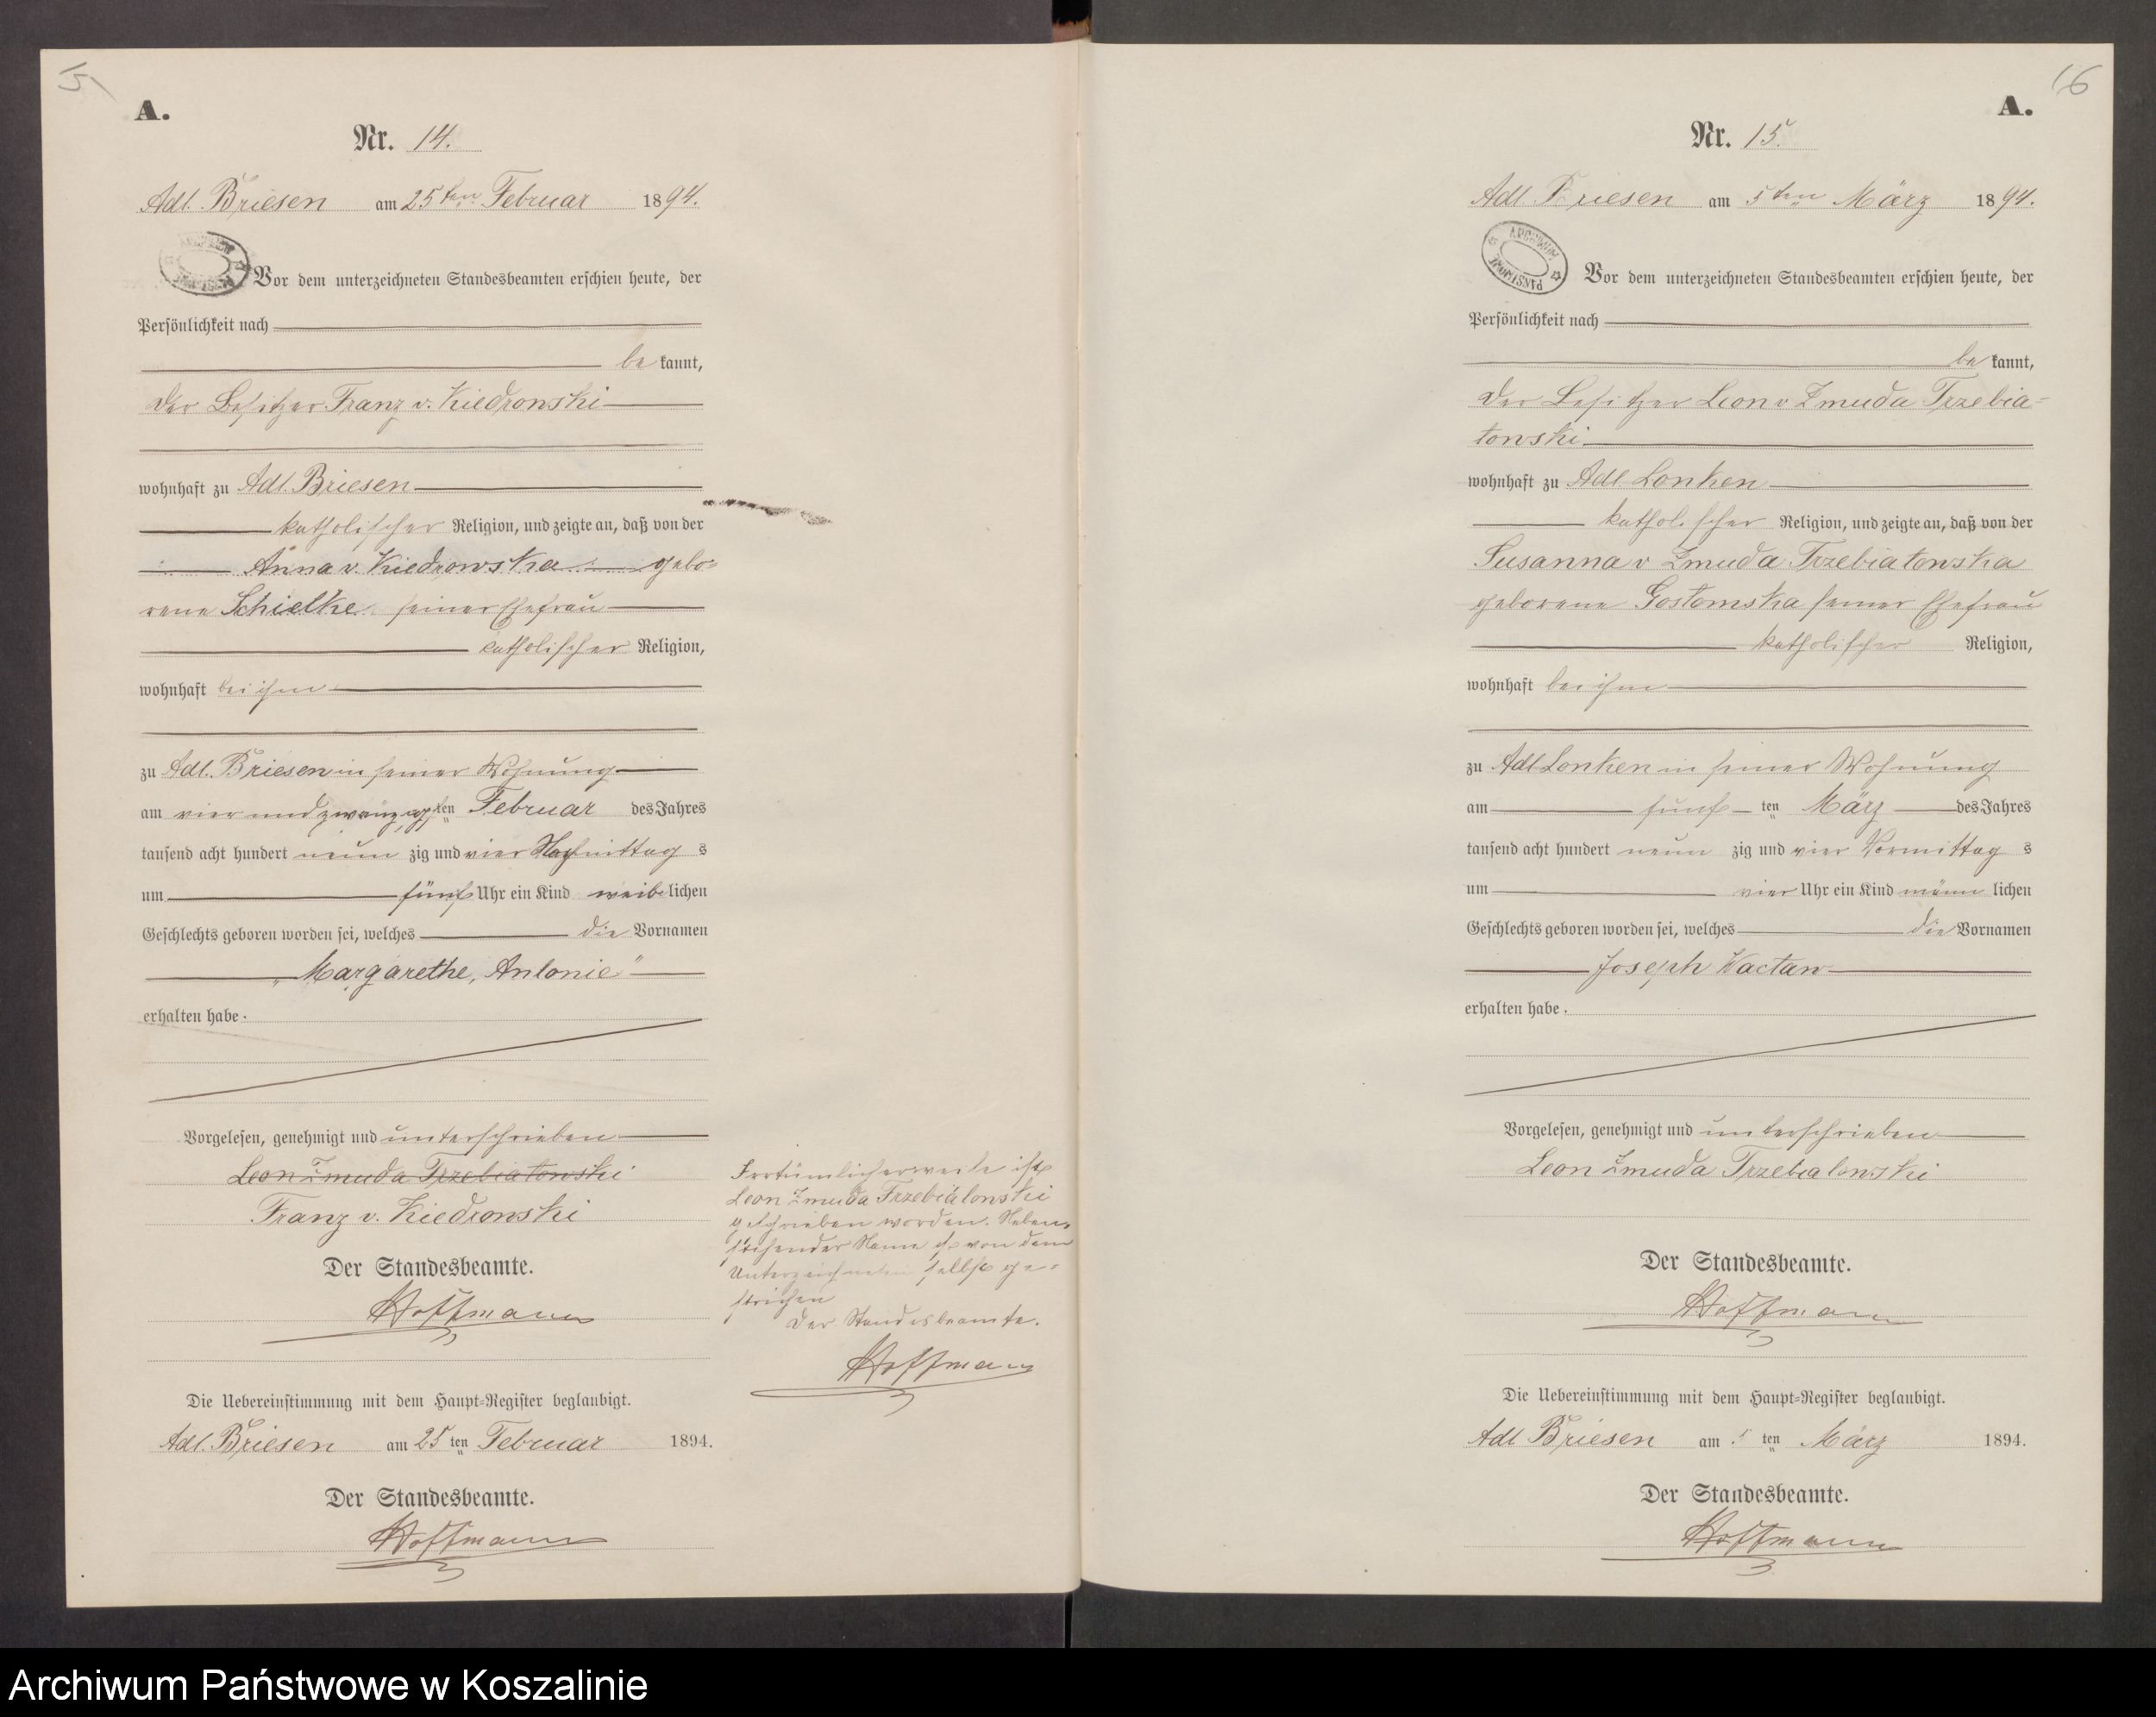 15
A.
Nr. 14.
Adl. Briesen am 25ten Februar 1894.
Vor dem unterzeichneten Standesbeamten erschien heute, der
Persönlichkeit nach
be kannt,
der Besitzer Franz v. Kiedrowski
wohnhaft zu Adl. Briesen
katholischer Religion, und zeigte an, daß von der
Anna v. Kiedrowska gebo-
rene Schielke seiner Ehefrau
katholischer Religion,
wohnhaft bei ihm
zu Adl. Briesen in seiner Wohnung
am vier und zwanzigsten Februar des Jahres
tausend acht hundert neun zig und vier Nachmittag s
um fünf Uhr ein Kind weib lichen
Geschlechts geboren worden sei, welches die Vornamen
„Margarethe, Antonie"
erhalten habe.
Vorgelesen, genehmigt und unterschrieben
Leon Zmuda Trzebiatowski
Franz v. Kiedrowski
Der Standesbeamte.
Hoffmann
Die Uebereinstimmung mit dem Haupt-Register beglaubigt.
Adl. Briesen am 25 ten Februar 1894.
Der Standesbeamte.
Hoffmann
Irrtümlicherweise ist
Leon Zmuda Trzebiatowski
geschrieben worden. Neben-
stehender Name ist von dem
Unterzeichneten selbst ge-
strichen
Der Standesbeamte.
Hoffmann
16
A.
Nr. 15.
Adl. Briesen am 5ten März 1894.
ARCHIWUM PAŃSTWOWE
Vor dem unterzeichneten Standesbeamten erschien heute, der
Persönlichkeit nach
be kannt,
der Besitzer Leon v Zmuda Trzebia-
towski
wohnhaft zu Adl Lonken
katholischer Religion, und zeigte an, daß von der
Susanna v Zmuda Trzebiatowska
geborene Gostomska seiner Ehefrau
katholischer Religion,
wohnhaft bei ihm
zu Adl Lonken in seiner Wohnung
am fünf ten März des Jahres
tausend acht hundert neun zig und vier Vormittag s
um vier Uhr ein Kind männ lichen
Geschlechts geboren worden sei, welches die Vornamen
Joseph Wactaw
erhalten habe.
Vorgelesen, genehmigt und unterschrieben
Leon Zmuda Trzebiatowski
Der Standesbeamte.
Hoffmann
Die Uebereinstimmung mit dem Haupt-Register beglaubigt.
Adl Briesen am 5 ten März 1894.
Der Standesbeamte.
Hoffmann
Archiwum Państwowe w Koszalinie